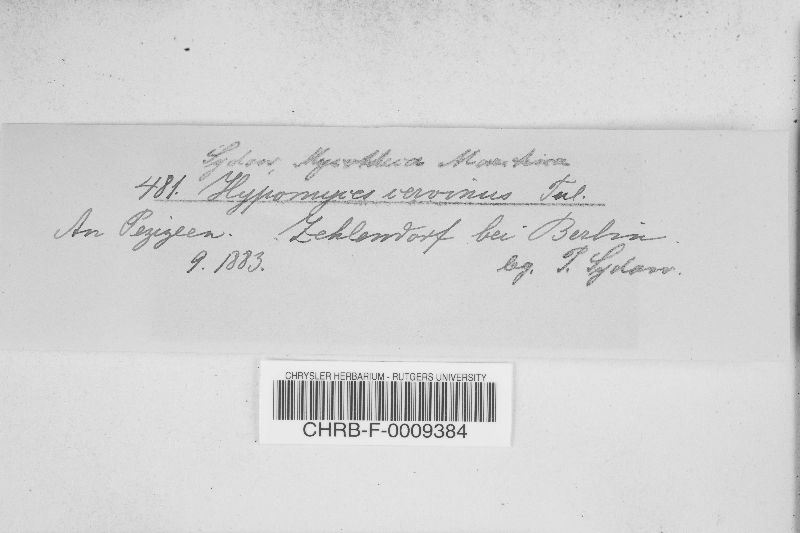 Sydow, Mycotheca Marchica
481. Hypomyces cervinus Tul.
An Pezizeen. Zehlendorf bei Berlin.
9. 1883. leg. P. Sydow.
CHRYSLER HERBARIUM - RUTGERS UNIVERSITY
CHRB-F-0009384